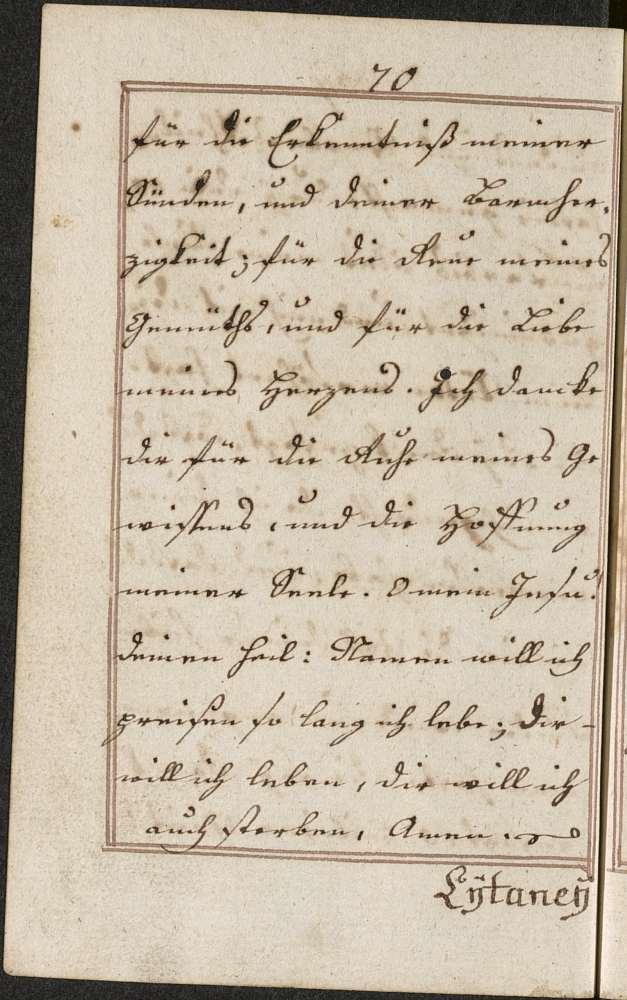 70
für die Erkenntniß meiner
Sünden, und deiner Barmher-
zigkeit; für die Reue meines
Gemüths, und für die Liebe
meines Herzens. Ich dancke
dir für die Ruhe meines Ge
wissens, und die Hoffnung
meiner Seele. O mein Jesu!
deinen heil: Namen will ich
preisen so lang ich lebe; dir-
will ich leben, dir will ich
auch sterben, Amen.
Lÿtaneÿ